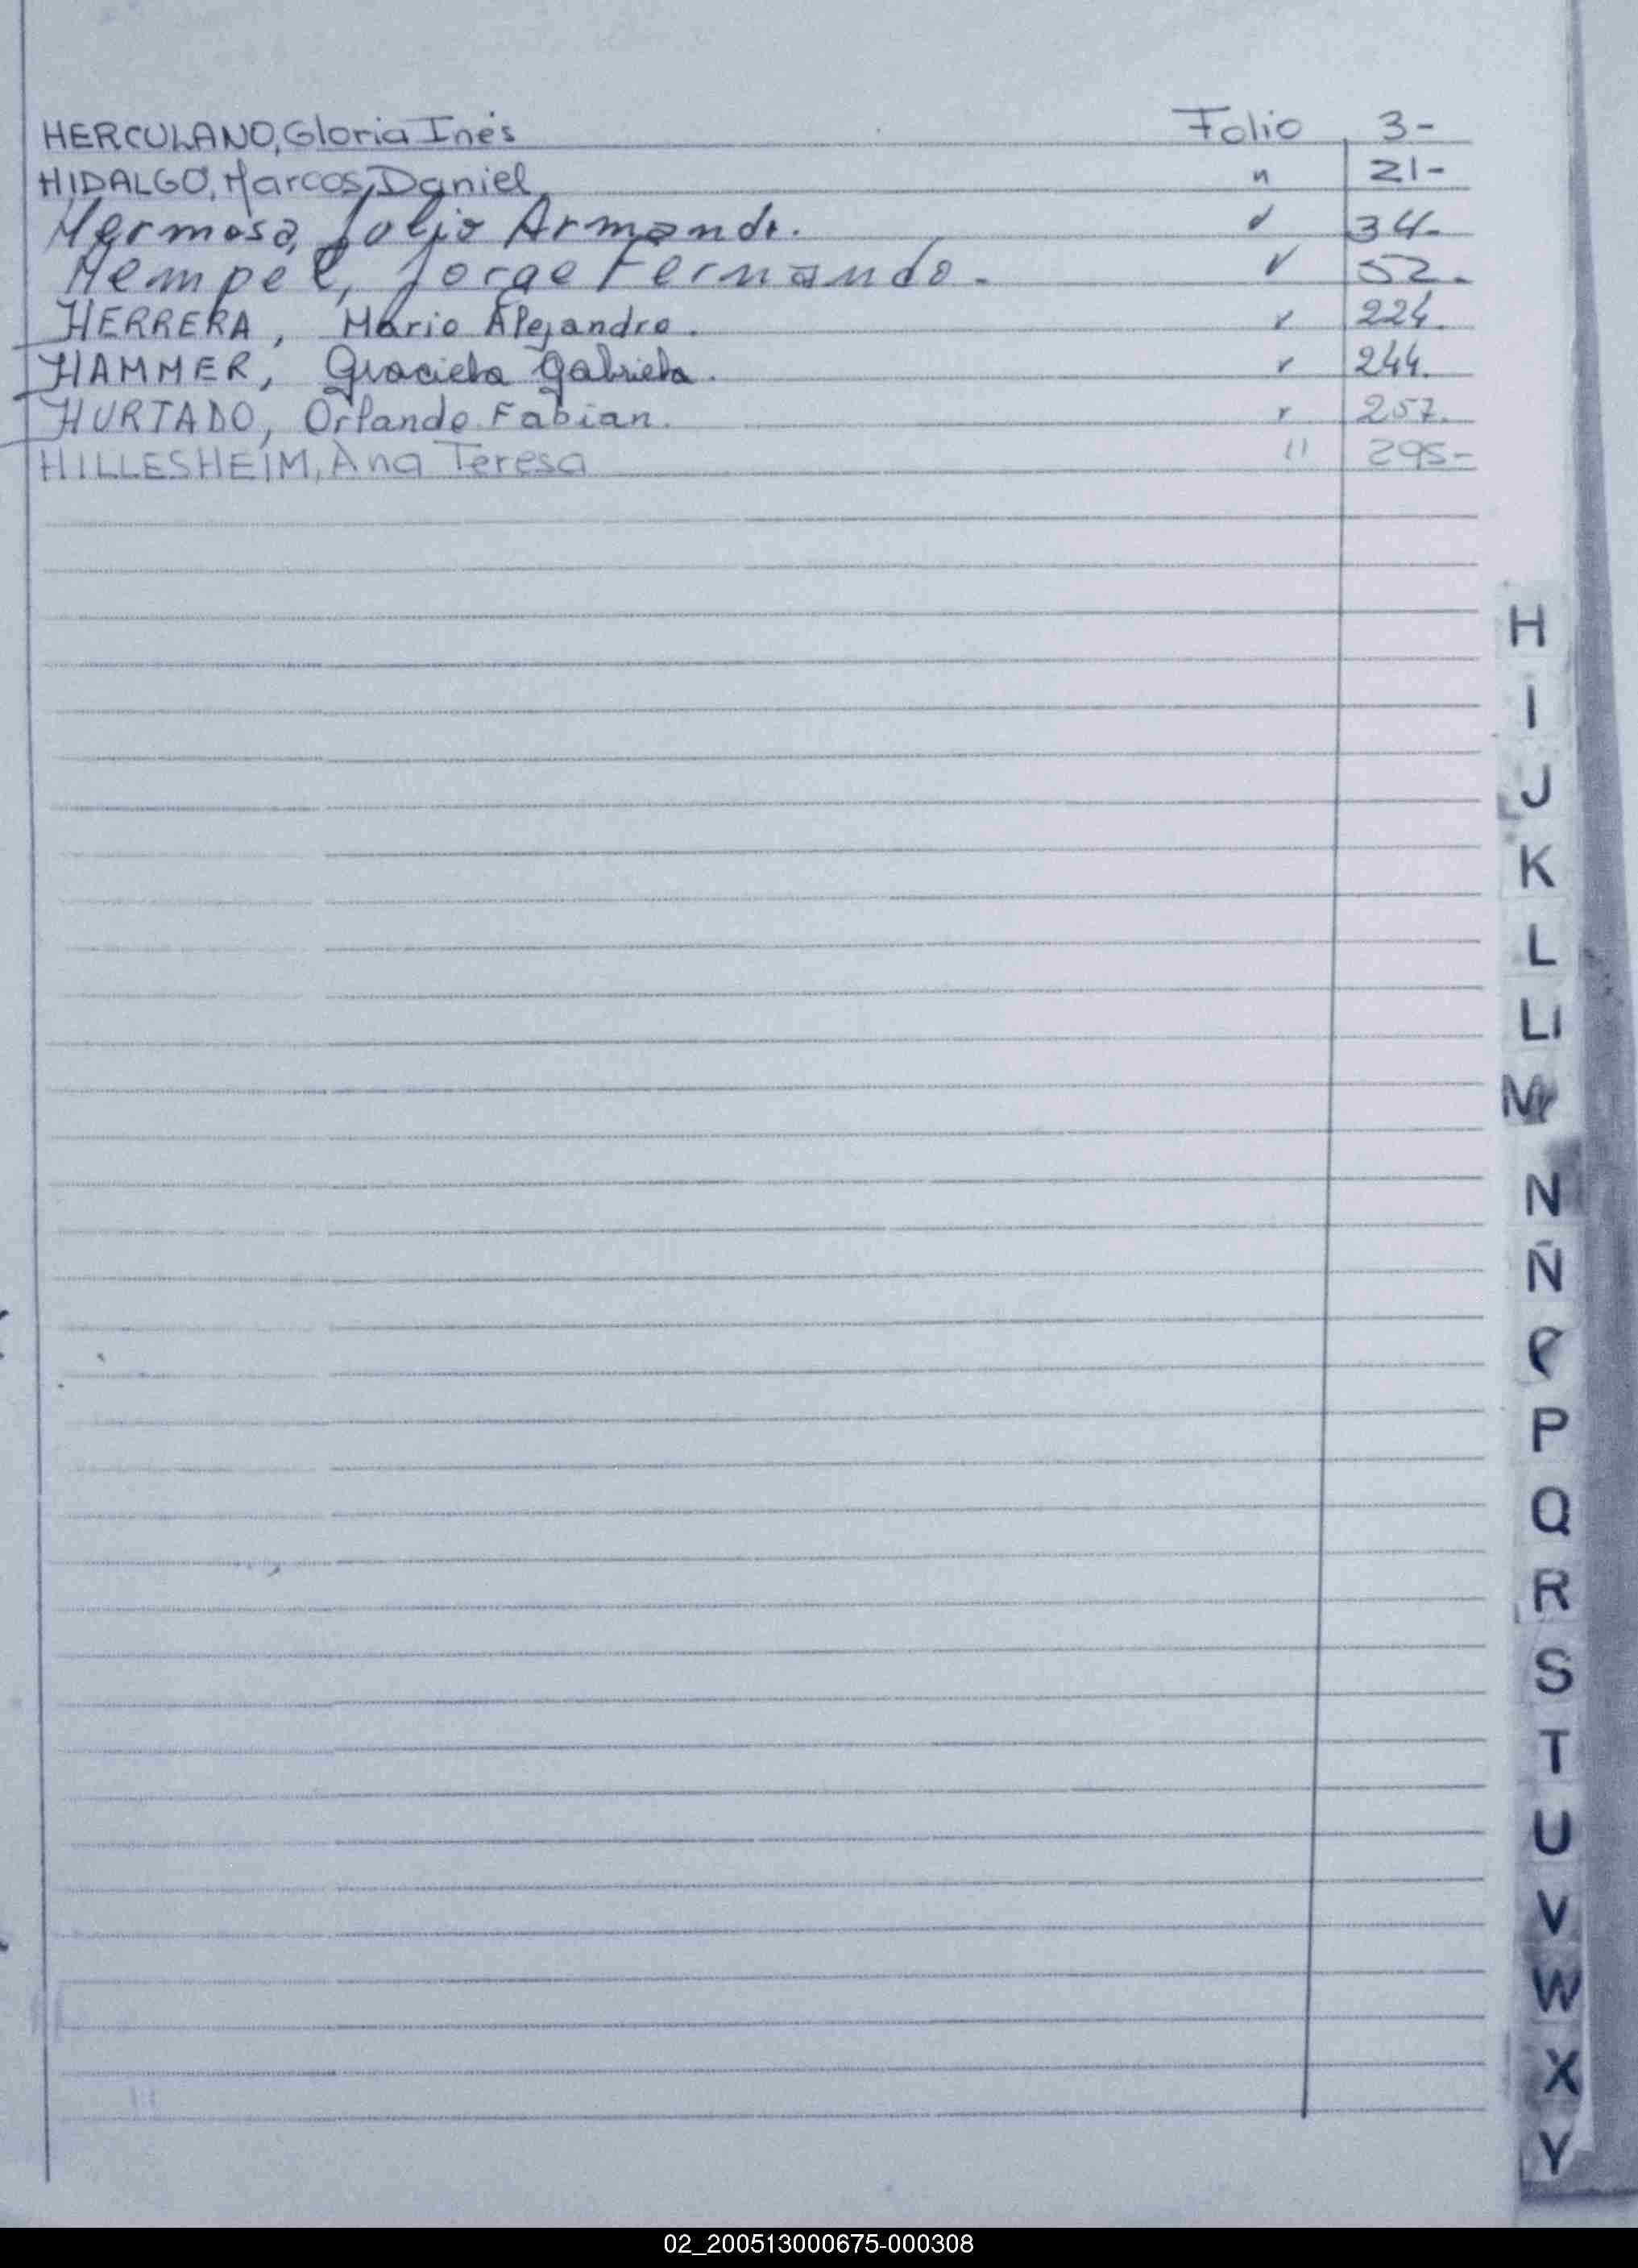 HERCULANO, Gloria Inés Folio 3-
HIDALGO, Marcos, Daniel " 21-
Hermosa, Julio Armando. " 34-
Hempel, Jorge Fernando.- " 52.
HERRERA, Mario Alejandro. " 224.
HAMMER, Graciela Gabriela. " 244.
HURTADO, Orlando Fabian. " 257.
HILLESHEIM, Ana Teresa " 295-
H
I
J
K
L
Ll
M
N
Ñ
P
Q
R
S
T
U
V
W
X
Y
02_200513000675-000308